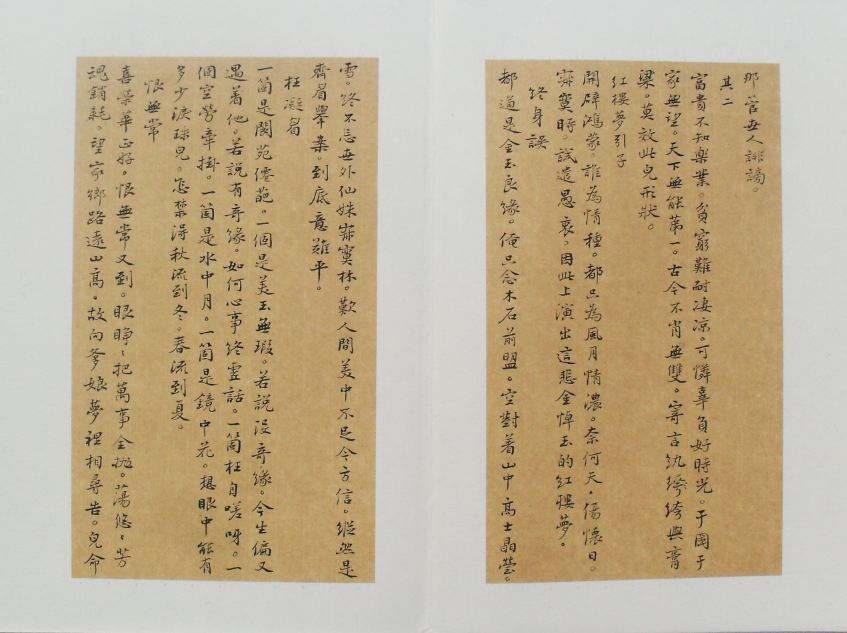 那管世人誹謗。
其二
富貴不知樂業。貧窮難耐凄涼。可憐辜負好時光。于國于
家無望。天下無能第一。古今不肖無雙。寄言紈絝與膏
梁。莫效此兒形狀。
紅樓夢引子
開辟鴻蒙。誰為情種。都只為風月情濃。奈何天。傷懷日。
寂寞時。試遣愚衷。因此上演出這悲金悼玉的紅樓夢。
終身誤
都道是金玉良緣。俺只念木石前盟。空對着山中高士晶瑩。
雪。終不忘世外仙姝寂寞林。歎人間美中不足今方信。縱然是
齊眉舉案。到底意難平。
枉凝眉
一箇是閬苑僊葩。一個是美玉無瑕。若說沒奇緣。今生偏又
遇着他。若說有奇緣。如何心事終虛話。一箇枉自嗟呀。一
個空勞牽掛。一箇是水中月。一箇是鏡中花。想眼中能有
多少淚珠兒。怎禁得秋流到冬。春流到夏。
恨無常
喜榮華正好。恨無常又到。眼睁〻把萬事全抛。蕩悠〻芳
魂銷耗。望家鄉路遠山高。故向爹娘夢裡相尋告。兒命